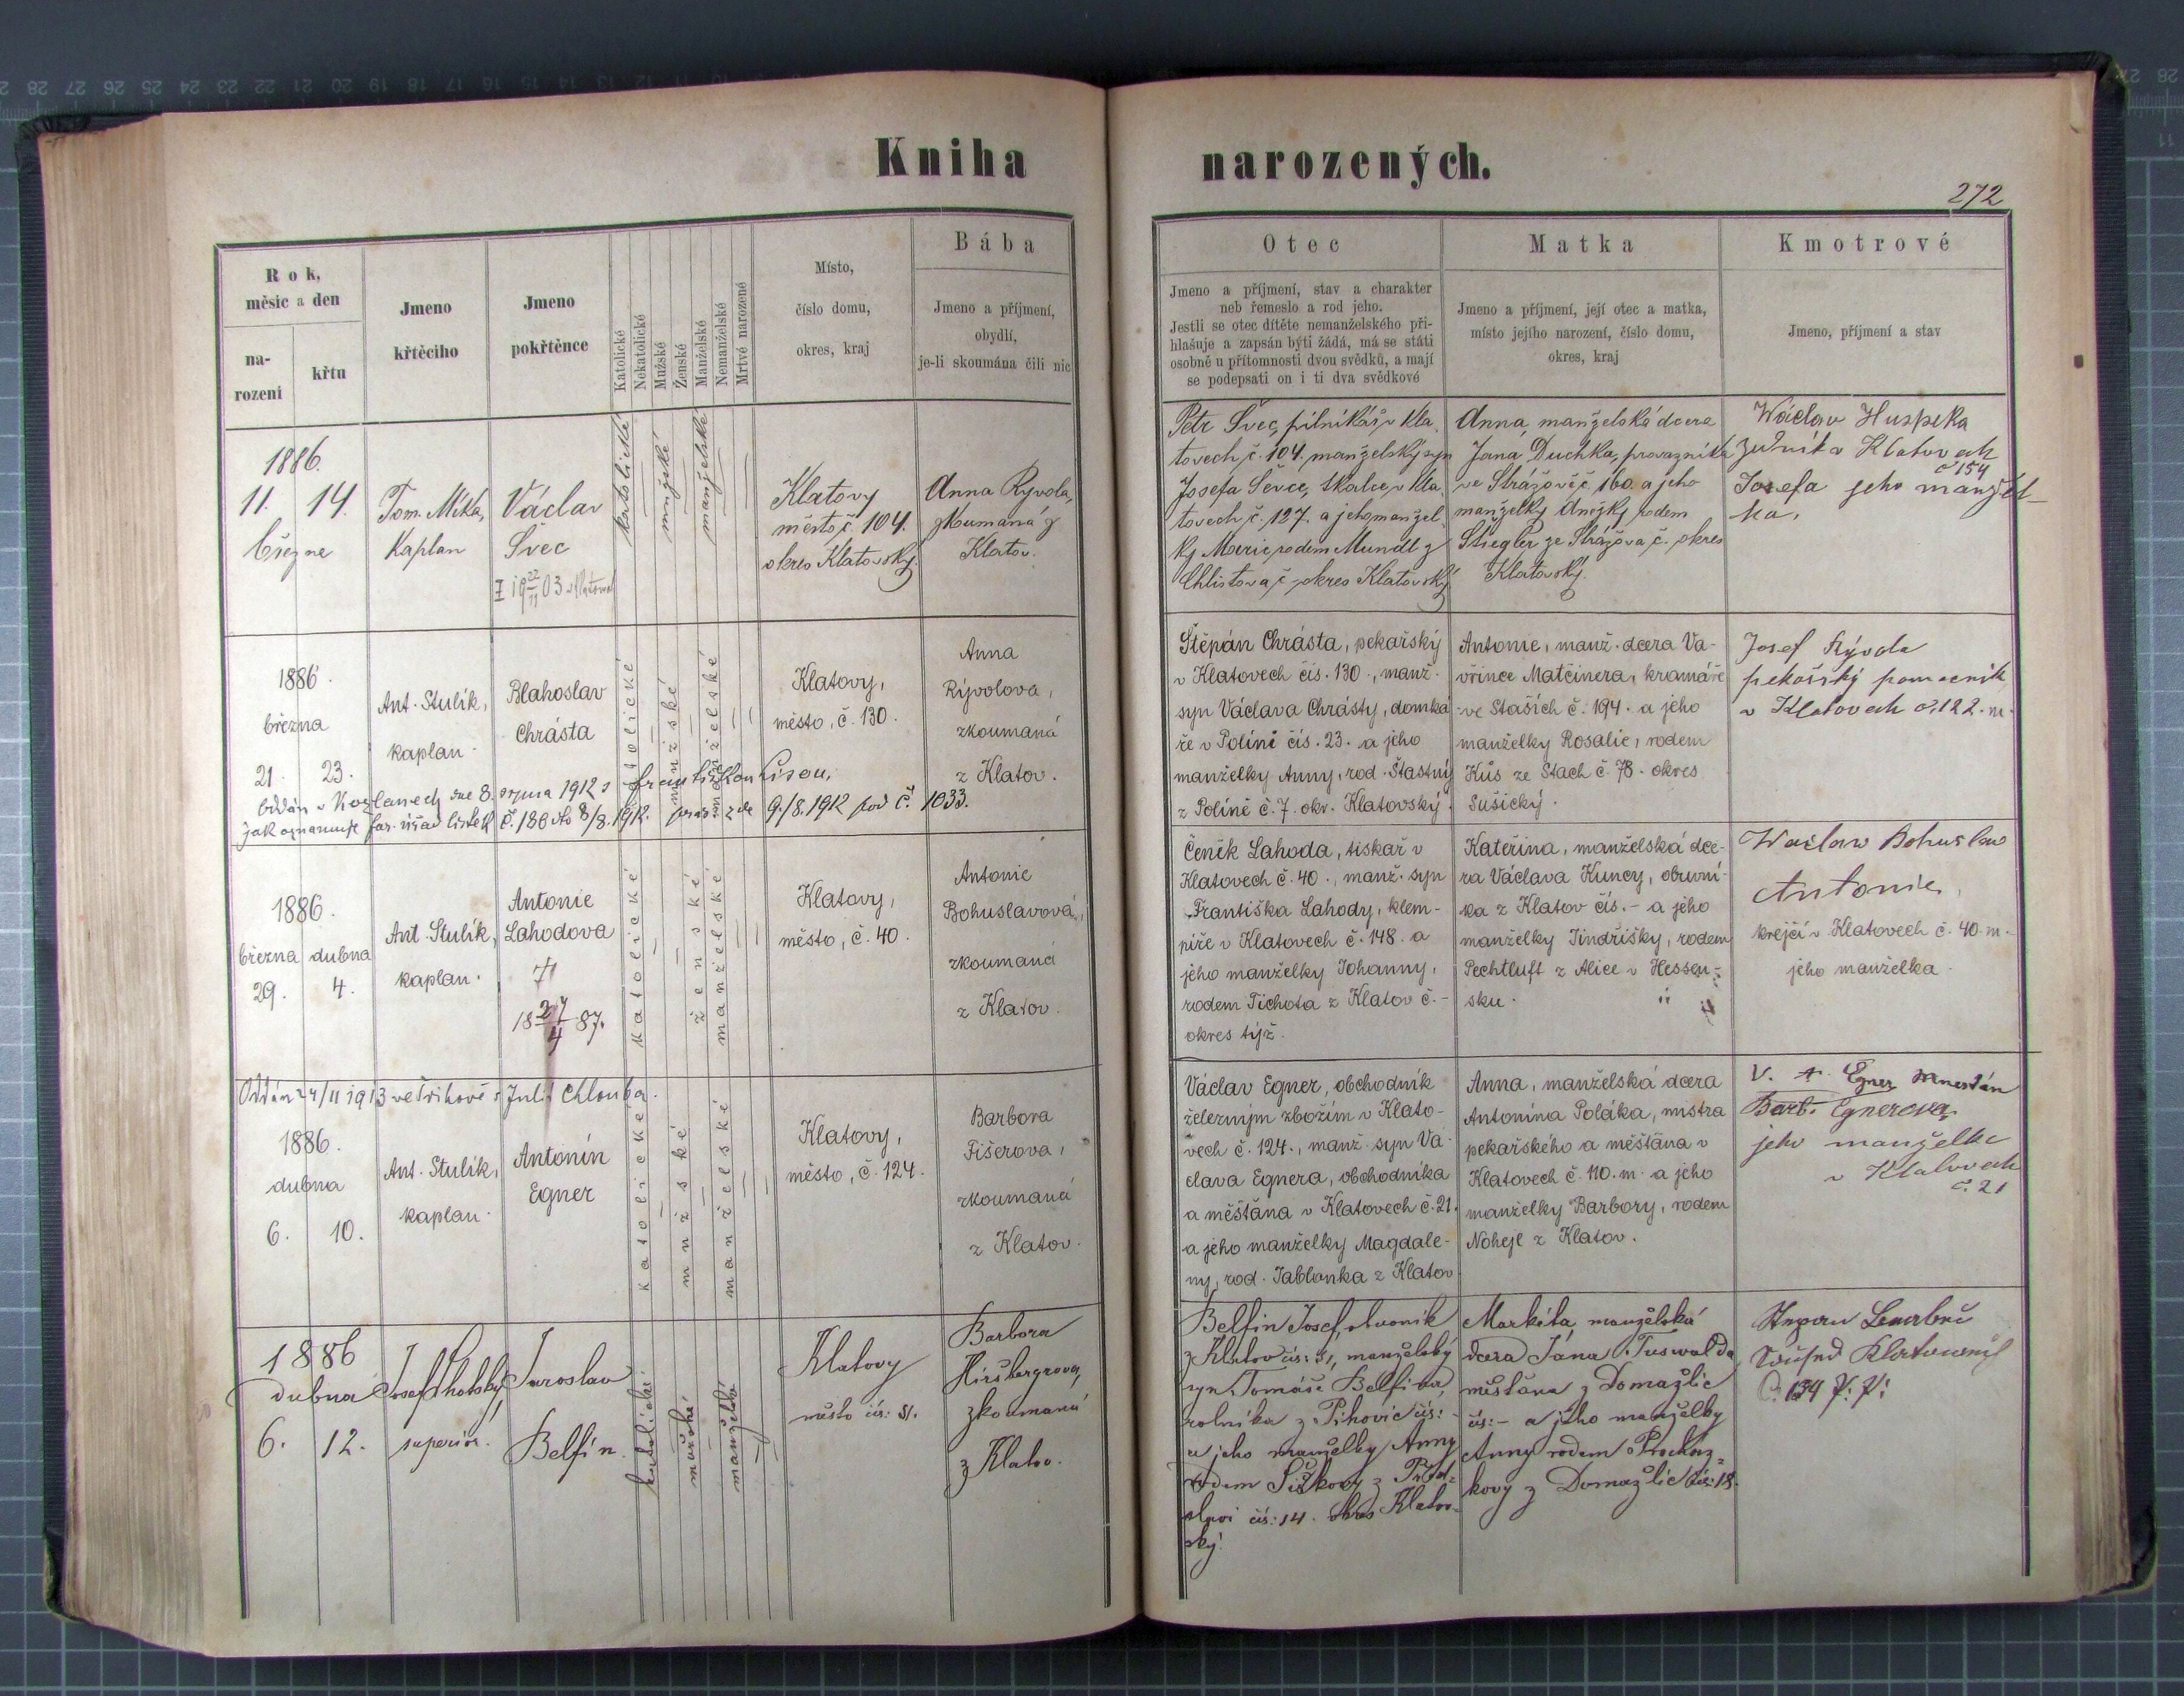 Kniha narozených.
272
Rok,
měsíc a den
na-
rozeni
křtu
Jmeno
křtěcího
Jmeno
pokřtěnce
Katolické
Nekatolické
Mužské
Ženské
Manželské
Nemanželské
Mrtvě narozené
Místo,
číslo domu,
okres, kraj
Bába
Jmeno a příjmení,
obydlí,
je-li skoumána čili nic
Otec
Jmeno a příjmení, stav a charakter
neb řemeslo a rod jeho.
Jestli se otec dítěte nemanželského při-
hlašuje a zapsán býti žádá, má se státi
osobně u přítomnosti dvou svědků, a mají
se podepsati on i ti dva svědkové
Matka
Jmeno a příjmení, její otec a matka,
místo jejího narození, číslo domu,
okres, kraj
Kmotrové
Jmeno, příjmení a stav
1886.
11. 14.
března
Tom. Mika,
Kaplan
Václav
Švec
katolické
mužské
manželské
Klatovy
město č. 104.
okres Klatovský.
Anna Ryvola,
zkoumaná z
Klatov.
Petr Švec, pilníkář v Kla-
tovech č. 104. manželský syn
Josefa Ševce, tkalce v Kla-
tovech č. 127. a jeho manžel-
ky Marie rodem Mundl z
Chlistova č. okres Klatovský
Anna, manželská dcera
Jana Duchka, provazníka
ve Strážově č. 160. a jeho
manželky Anežky rodem
Stiegler ze Strážova č. okres
Klatovský.
Wáclav Huspeka
v Klatovech
č 154
Josefa jeho manžel-
ka.
1886.
března
21. 23.
Ant. Stulík,
kaplan.
Blahoslav
Chrásta
katolické
mužské
manželské
Klatovy,
město, č. 130.
Anna
Rývolova,
zkoumaná
z Klatov.
v Kozlanech dne 8. srpna 1912 s Františkou Lisou,
jak oznamuje far. úřad lístek č. 186 dto 8/8. 1912. 9./8. 1912 pod č. 1033.
Štěpán Chrásta, pekařský
v Klatovech čís. 130., manž.
syn Václava Chrásty, domká-
ře v Políně čís. 23. a jeho
manželky Anny, rod. Šťastný
z Políně č. 7. okr. Klatovský.
Antonie, manž. dcera Va-
vřince Matčinera, kramáře
ve Stašich č. 194. a jeho
manželky Rosalie, rodem
Kůs ze Stach č. 78. okres
Sušický.
Josef Rývola
pekařský pomocnik
v Klatovech č. 122. m.
1886.
března dubna
29. 4.
Ant. Stulík,
kaplan.
Antonie
Lahodova
†
18 27/4 87.
katolické
ženské
manželské
Klatovy,
město, č. 40.
Antonie
Bohuslavová,
zkoumaná
z Klatov.
Čeněk Lahoda, tiskař v
Klatovech č. 40., manž. syn
Františka Lahody, klem-
píře v Klatovech č. 148. a
jeho manželky Johanny,
rodem Tichota z Klatov č. -
okres týž.
Kateřina, manželská dce-
ra Václava Kuncy, obuvní-
ka z Klatov čís. - a jeho
manželky Jindřišky, rodem
Pechtluft z Alice v Hessen-
sku.
Waclaw Bohuslaw
Antonie,
krejčí v Klatovech č. 40. m.
jeho manželka.
Oddán 24/11 1913 ve s Julií Chlouba.
1886.
dubna
6. 10.
Ant. Stulík,
kaplan.
Antonín
Egner
katolické
mužské
manželské
Klatovy,
město, č. 124.
Barbora
Fišerova,
zkoumaná
z Klatov.
Václav Egner, obchodník
železným zbožím v Klato-
vech č. 124., manž. syn Vá-
clava Egnera, obchodníka
a měšťána v Klatovech č. 21.
a jeho manželky Magdale-
ny, rod. Jablonka z Klatov
Anna, manželská dcera
Antonína Poláka, mistra
pekařského a měšťána v
Klatovech č. 110. m. a jeho
manželky Barbory, rodem
Nohejl z Klatov.
V. Egner
Barb. Egnerova
jeho manželka
v Klatovech
č. 21
1886
dubna
6. 12.
Josef
superiór.
Jaroslav
Belfín.
katolické
mužské
manželské
Klatovy
město čís: 51.
Barbora
Hiršbergrova,
zkoumaná
z Klatov.
Belfin Josef,
z Klatov čís: 51, manželský
syn Tomáše Belfina,
rolníka z čís:
a jeho manželky Anny
rodem Šiškovy z
čís: 14. okres Klatov-
ský.
Markéta manželská
dcera Jána Tuswalda
měšťana z Domažlic
čís: - a jeho manželky
Anny rodem Procház-
kovy z Domažlic čís: 18.
Klatowech